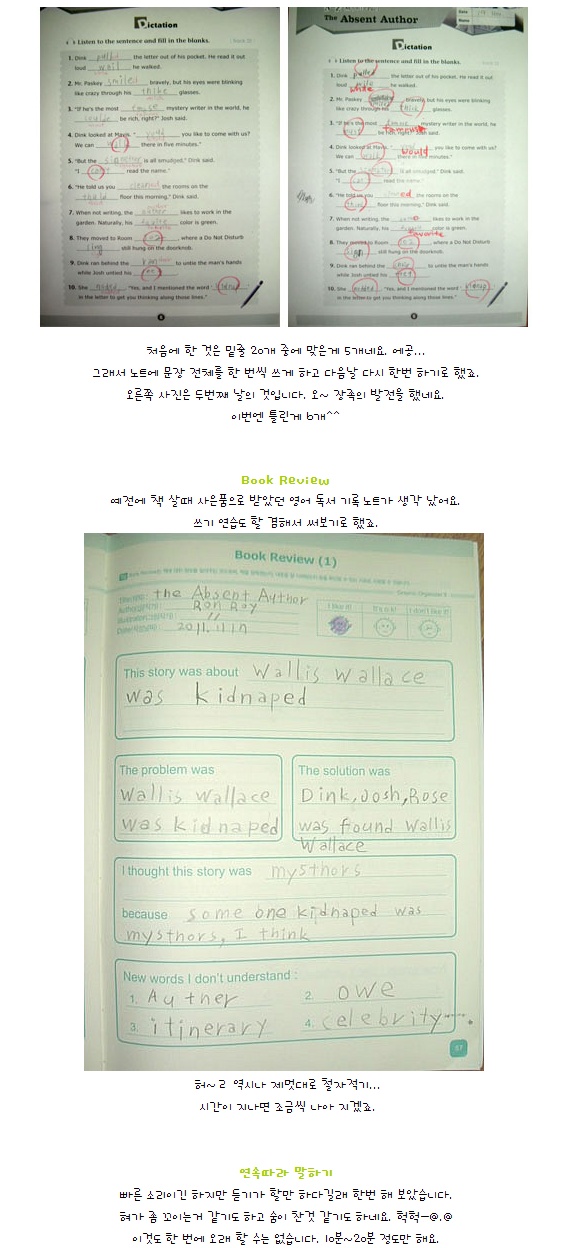 Dictation
Listen to the sentence and fill in the blanks.
1. Dink pulled the letter out of his pocket. He read it out
loud wail he walked.
2. Mr. Paskey smiled bravely, but his eyes were blinking
like crazy through his thike glasses.
3. "If he's the most mystery writer in the world, he
be rich, right?" Josh said.
4. Dink looked at Mavis. " you like to come with us?
We can there in five minutes."
5. "But the is all smudged," Dink said.
"I read the name."
6. "He told us you cleaned the rooms on the
floor this morning," Dink said.
7. When not writing, the likes to work in the
garden. Naturally, his color is green.
8. They moved to Room , where a Do Not Disturb
still hung on the doorknob.
9. Dink ran behind the to untie the man's hands
while Josh untied his
10. She . "Yes, and I mentioned the word
in the letter to get you thinking along those lines."
The Absent Author
Dictation
Listen to the sentence and fill in the blanks.
1. Dink pulled the letter out of his pocket. He read it out
loud he walked.
while
2. Mr. Paskey bravely, but his eyes were blinking
like crazy through his thick glasses.
3. "If he's the most mystery writer in the world, he
be rich, right?" Josh said.
famous
4. Dink looked at Mavis. " you like to come with us?
would
We can there in five minutes."
5. "But the is all smudged," Dink said.
"I read the name."
6. "He told us you ed the rooms on the
floor this morning," Dink said.
7. When not writing, the likes to work in the
garden. Naturally, his color is green.
favorite
8. They moved to Room , where a Do Not Disturb
sign still hung on the doorknob.
9. Dink ran behind the to untie the man's hands
while Josh untied his
10. She . "Yes, and I mentioned the word
in the letter to get you thinking along those lines."
처음에 한 것은 밑줄 20개 중에 맞은게 5개네요. 에공...
그래서 노트에 문장 전체를 한 번씩 쓰게 하고 다음날 다시 한번 하기로 했죠.
오른쪽 사진은 두번째 날의 것입니다. 오~ 장족의 발전을 했네요.
이번엔 틀린게 6개^^
Book Review
예전에 책 살때 사은품으로 받았던 영어 독서 기록노트가 생각 났어요.
쓰기 연습도 할 겸해서 써보기로 했죠.
Book Review (1)
the Absent Author
Ron Roy
"
2011. 11 17
I like it! It's o.k! I don't like it!
This story was about Wallis Wallace
was kidnaped
The problem was
Wallis Wallace
was kidnaped
The solution was
Dink, Josh, Rose
was found Wallis
Wallace
I thought this story was mysthors
because some one kidnaped was
mysthors, I think
New words I don't understand :
1. Auther
2. owe
3. itinerary
4. celebrity
57
허~ㄹ 역시나 제멋대로 철자적기...
시간이 지나면 조금씩 나아 지겠죠.
연속따라 말하기
빠른 소리이긴 하지만 듣기가 할만 하다길래 한번 해 보았습니다.
혀가 좀 꼬이는거 같기도 하고 숨이 찬것 같기도 하네요. 헉헉-@.@
이것도 한 번에 오래 할 수는 없습니다. 10분~20분 정도만 해요.